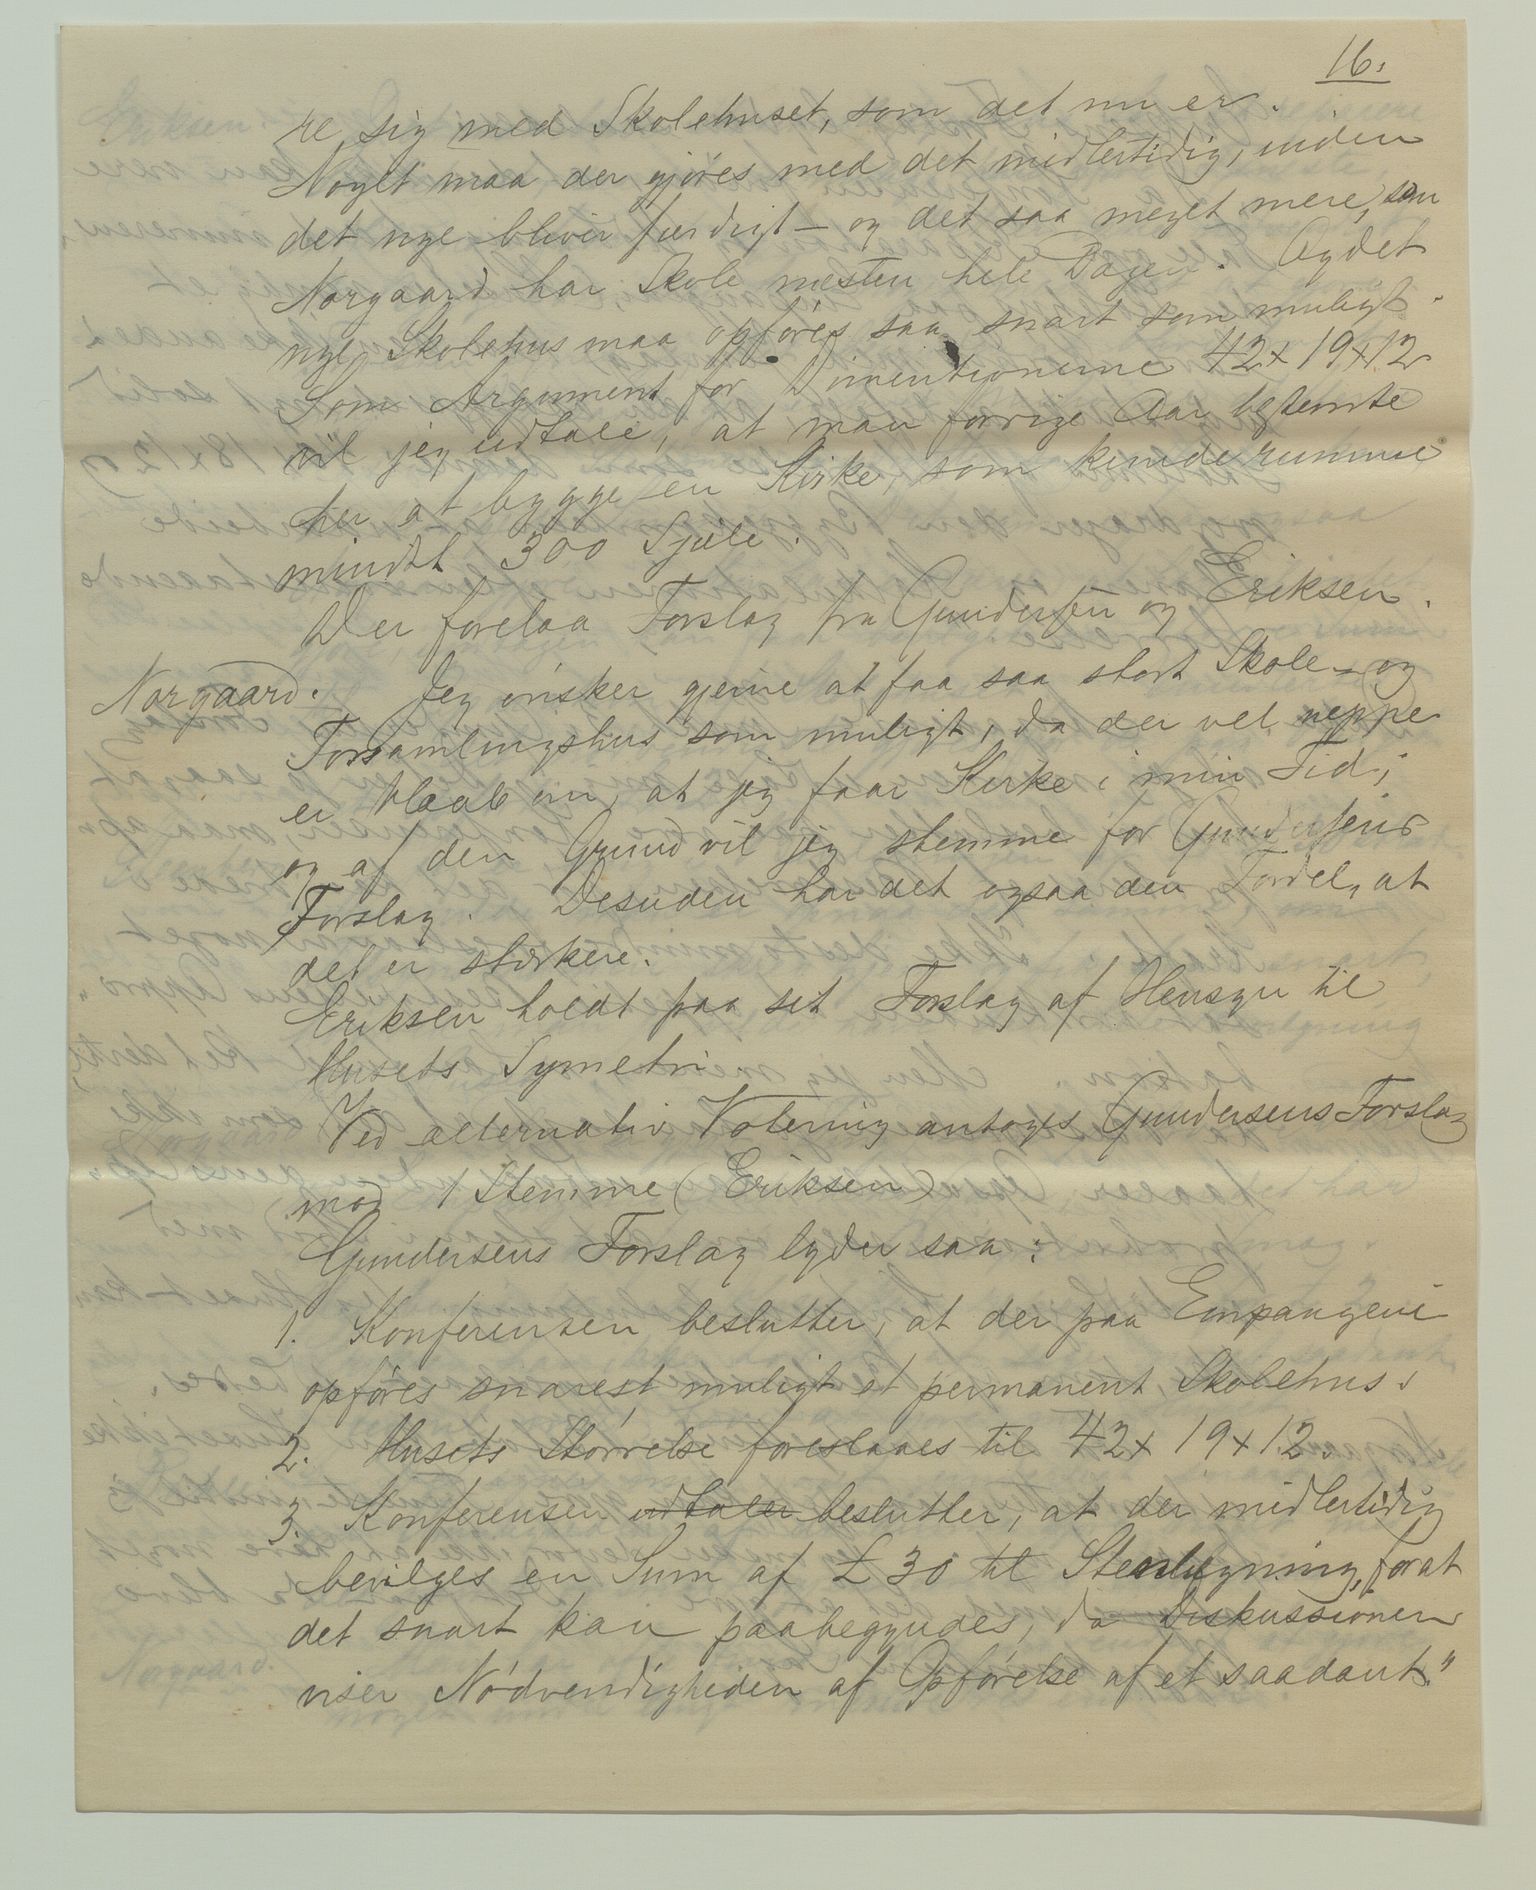 16.
re sig med Skolehuset, som det nu er.
Noget maa der gjöres med det midlertidig, inden
det nye bliver færdigt – og det saa meget mere, som
Norgaard har Skole næsten hele Dagen. Og det
nye Skolehus maa opföres saa snart som muligt.
Som Argument for Dimentionerne 42 x 19 x 12
vil jeg udtale, at man forrige Aar bestemte
her at bygge en Kirke, som kunde rumme
mindst 300 Sjæle.
Der forelaa Forslag fra Gundersen og Eriksen.
Norgaard. Jeg önsker gjerne at faa saa stort Skole- og
Forsamlingshus som muligt, da der vel neppe
er Haab om, at jeg faar Kirke i min Tid;
og af den Grund vil jeg stemme for Gundersens
Forslag. Desuden har det ogsaa den Fordel, at
det er stærkere.
Eriksen holdt paa sit Forslag af Hensyn til
Husets Symetri.
Ved alternativ Votering antoges Gundersens Forslag
mod 1 Stemme (Eriksen)
Gundersens Forslag lyder saa:
1. Konferensen beslutter, at der paa Empangeni
opföres snarest muligt et permanent Skolehus.
2. Husets Störrelse foreslaaes til 42 x 19 x 12.
3. Konferensen udtaler beslutter, at der midlertidig
bevilges en Sum af £ 30 til Stenbrygning, forat
det snart kan paabegyndes, da Diskussionen
viser Nödvendigheden af Opförelse af et saadant."